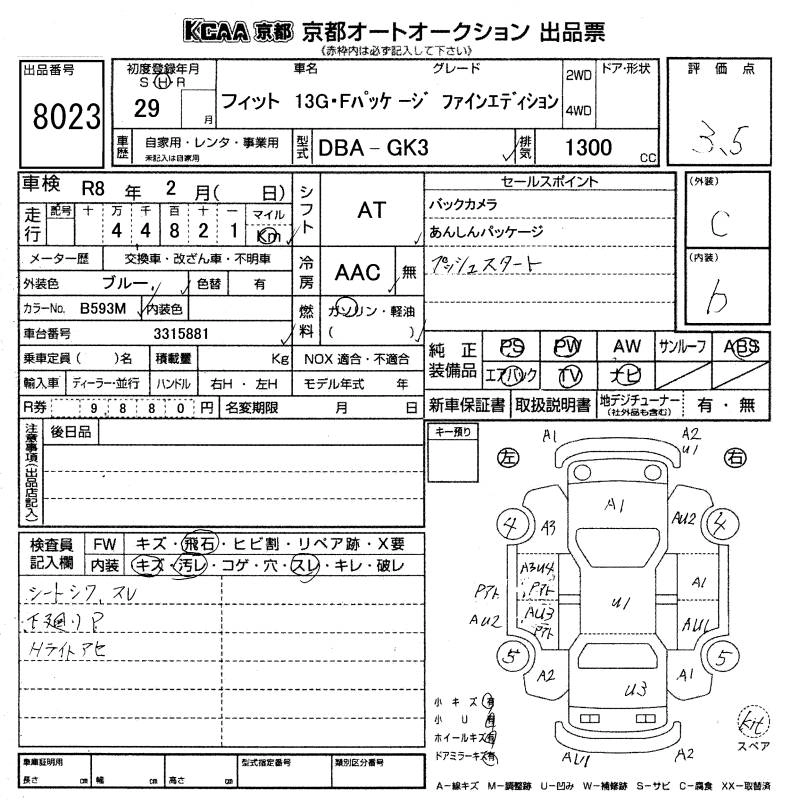 KCAA 京都 京都オートオークション 出品票
《赤枠内は必ず記入して下さい》
出品番号
8023
初度登録年月
S H R
29 月
車名 グレード
フィット 13G・Fパッケージ ファインエディション
2WD
4WD
ドア・形状
車歴 自家用・レンタ・事業用
未記入は自家用
型式 DBA-GK3
排気 1300 CC
評価点
3.5
車検 R8 年 2 月( 日)
走行 記号 十 万 千 百 十 一 マイル
4 4 8 2 1 Km
メーター歴 交換車・改ざん車・不明車
外装色 ブルー 色替 有
カラーNo. B593M 内装色
車台番号 3315881
乗車定員( )名 積載量 Kg NOX 適合・不適合
輸入車 ディーラー・並行 ハンドル 右H・左H モデル年式 年
R券 9880 円 名変期限 月 日
シフト AT
冷房 AAC 無
燃料 ガソリン・軽油
( )
セールスポイント
バックカメラ
あんしんパッケージ
プッシュスタート
(外装)
C
(内装)
b
純正装備品 PS PW AW サンルーフ ABS
エアバック TV ナビ
新車保証書 取扱説明書 地デジチューナー 有・無
(社外品も含む)
注意事項(出品店記入)
後日品
キー預り
検査員記入欄
FW キズ・飛石・ヒビ割・リペア跡・X要
内装 キズ・汚レ・コゲ・穴・スレ・キレ・破レ
シートシワ、スレ
下廻りP
Hライトアセ
左 右
A1 A2
U1
A1
4 A3 AU2 4
A3U4
Pアト Pアト A1
U1
AU2 AU3 AU1
Pアト
5 A2 A1 5
U3
AU1 A2
小キズ 有
小U 有
ホイールキズ 有
ドアミラーキズ 有
kit
スペア
車庫証明用
長さ cm 幅 cm 高さ cm
型式指定番号
類別区分番号
A-線キズ M-調整跡 U-凹み W-補修跡 S-サビ C-腐食 XX-取替済